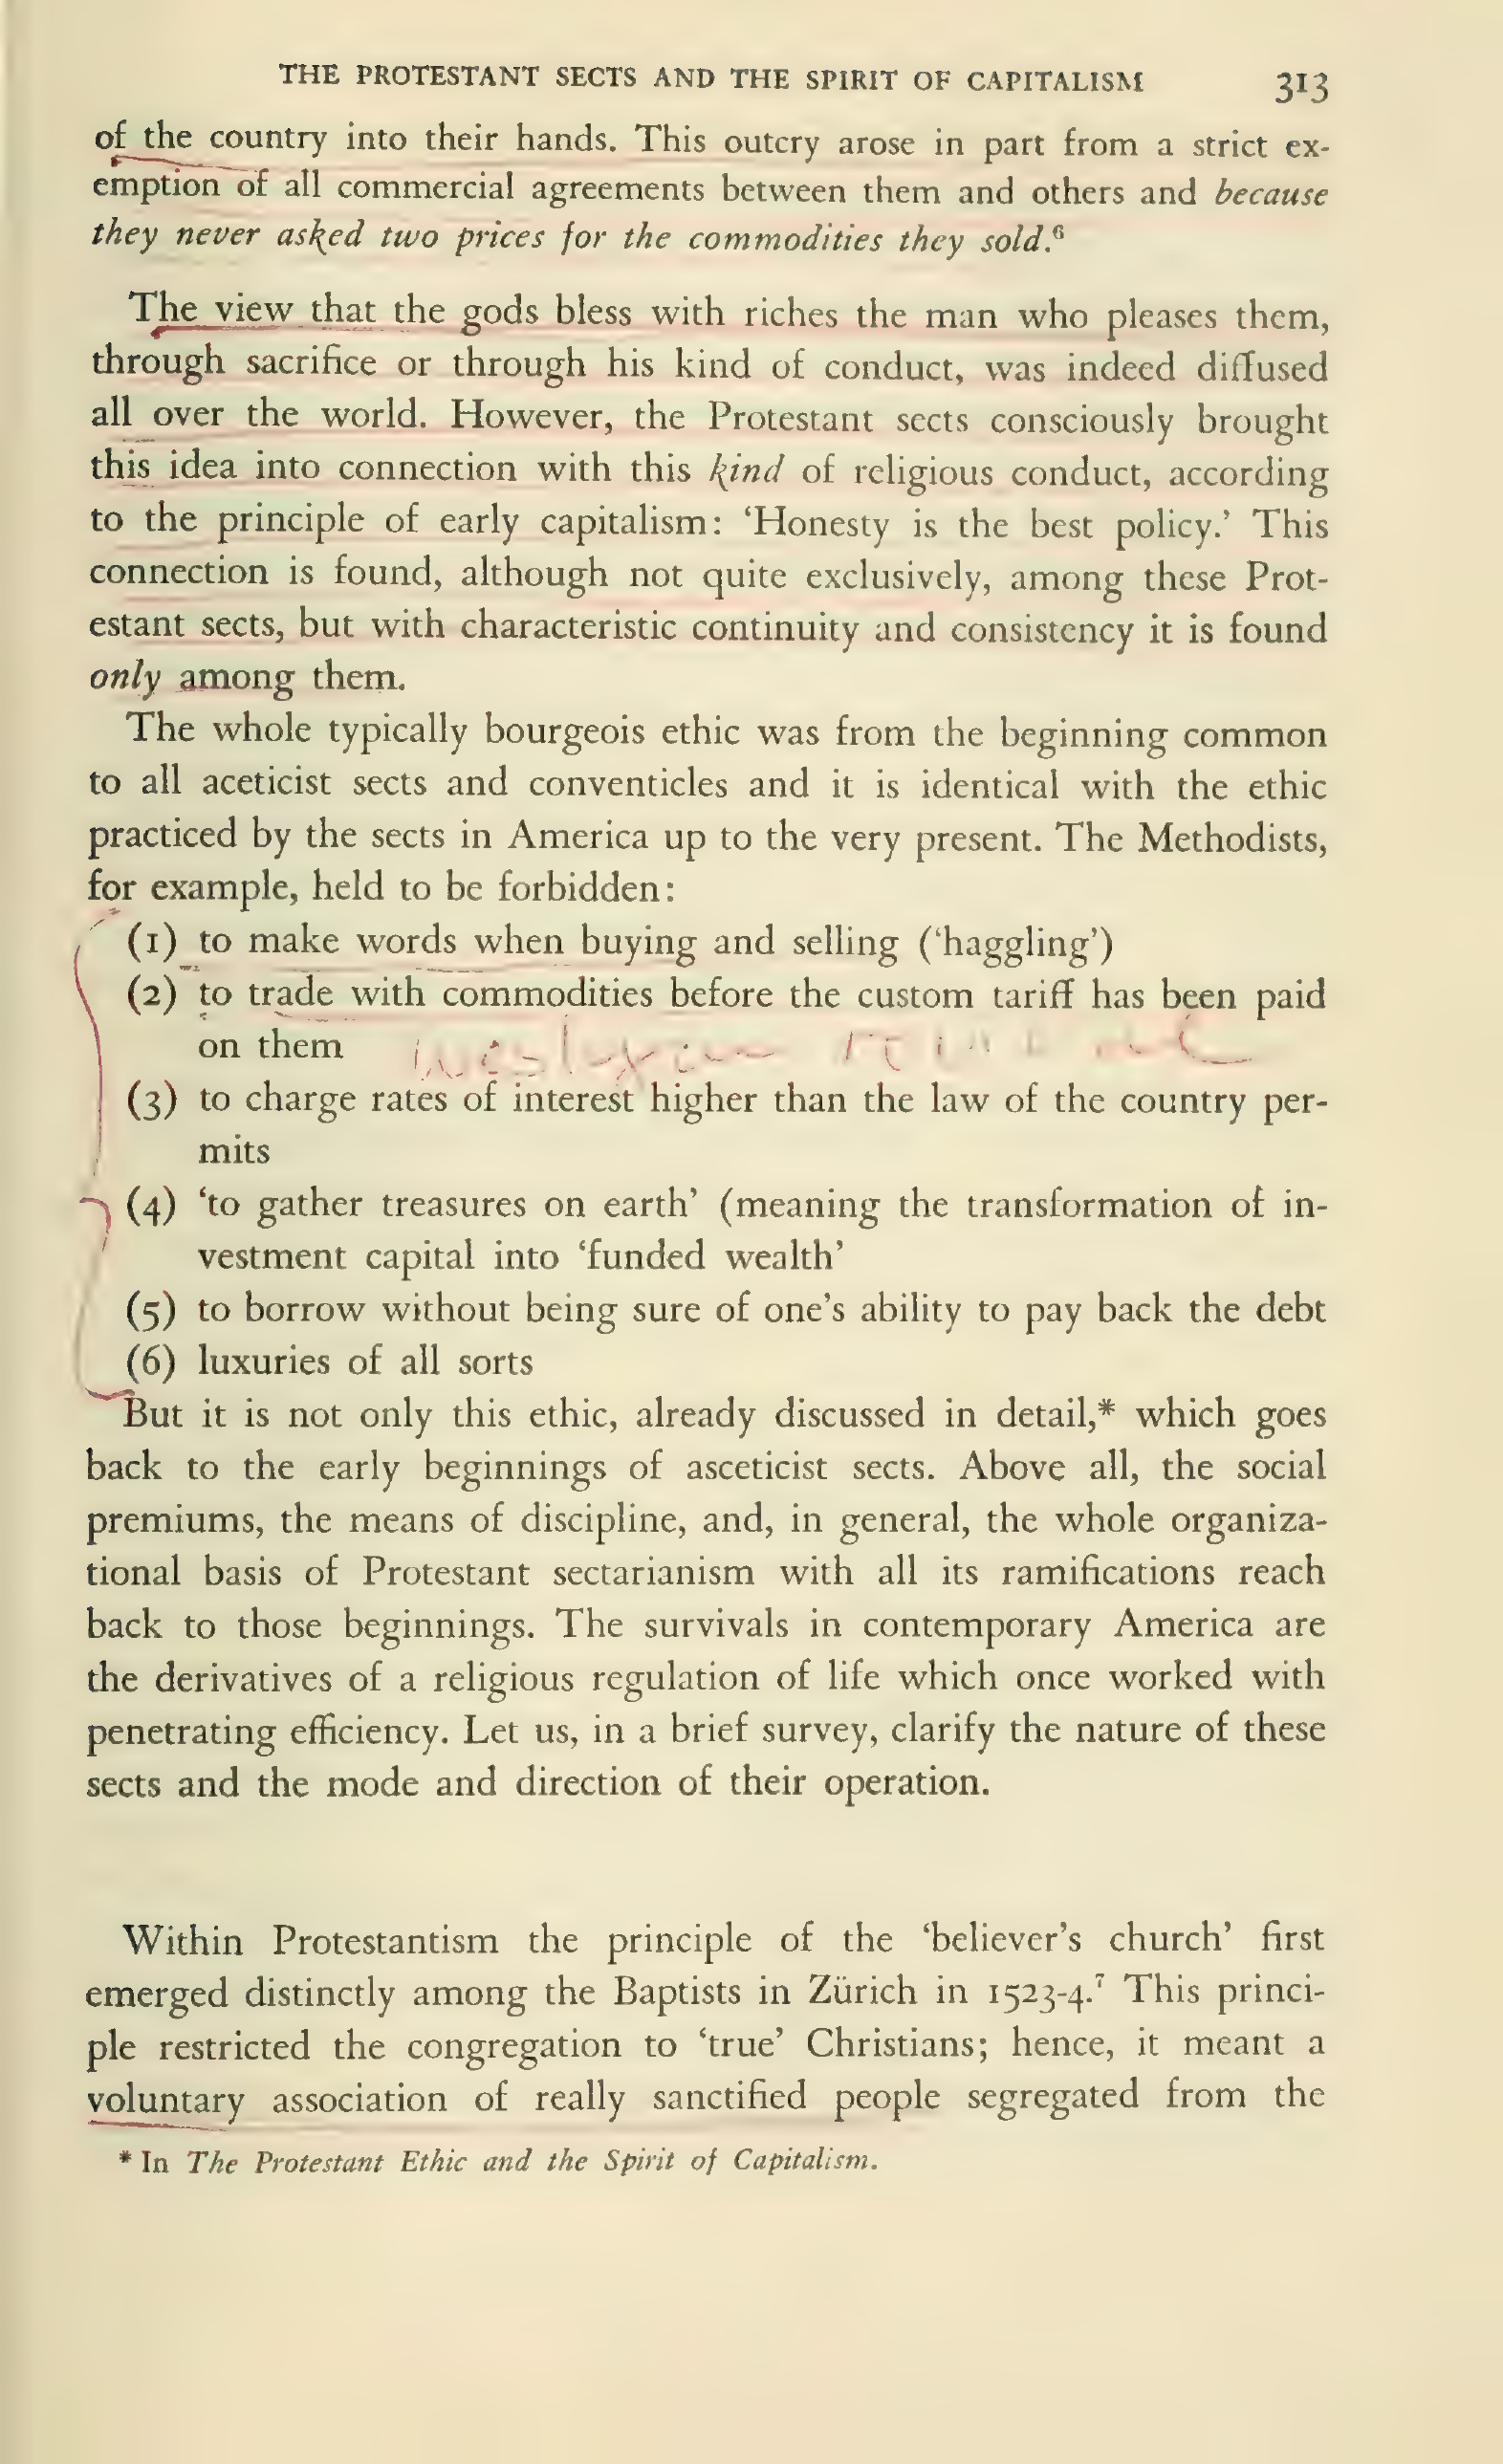 THE PROTESTANT SECTS AND THE SPIRIT OF CAPITALISM 313
of the country into their hands. This outcry arose in part from a strict ex-
emption of all commercial agreements between them and others and because
they never asked two prices for the commodities they sold.⁶
The view that the gods bless with riches the man who pleases them,
through sacrifice or through his kind of conduct, was indeed diffused
all over the world. However, the Protestant sects consciously brought
this idea into connection with this kind of religious conduct, according
to the principle of early capitalism: ‘Honesty is the best policy.’ This
connection is found, although not quite exclusively, among these Prot-
estant sects, but with characteristic continuity and consistency it is found
only among them.
The whole typically bourgeois ethic was from the beginning common
to all aceticist sects and conventicles and it is identical with the ethic
practiced by the sects in America up to the very present. The Methodists,
for example, held to be forbidden:
(1) to make words when buying and selling (‘haggling’)
(2) to trade with commodities before the custom tariff has been paid
on them
(3) to charge rates of interest higher than the law of the country per-
mits
(4) ‘to gather treasures on earth’ (meaning the transformation of in-
vestment capital into ‘funded wealth’
(5) to borrow without being sure of one’s ability to pay back the debt
(6) luxuries of all sorts
But it is not only this ethic, already discussed in detail,* which goes
back to the early beginnings of asceticist sects. Above all, the social
premiums, the means of discipline, and, in general, the whole organiza-
tional basis of Protestant sectarianism with all its ramifications reach
back to those beginnings. The survivals in contemporary America are
the derivatives of a religious regulation of life which once worked with
penetrating efficiency. Let us, in a brief survey, clarify the nature of these
sects and the mode and direction of their operation.
Within Protestantism the principle of the ‘believer’s church’ first
emerged distinctly among the Baptists in Zürich in 1523-4.⁷ This princi-
ple restricted the congregation to ‘true’ Christians; hence, it meant a
voluntary association of really sanctified people segregated from the
* In The Protestant Ethic and the Spirit of Capitalism.